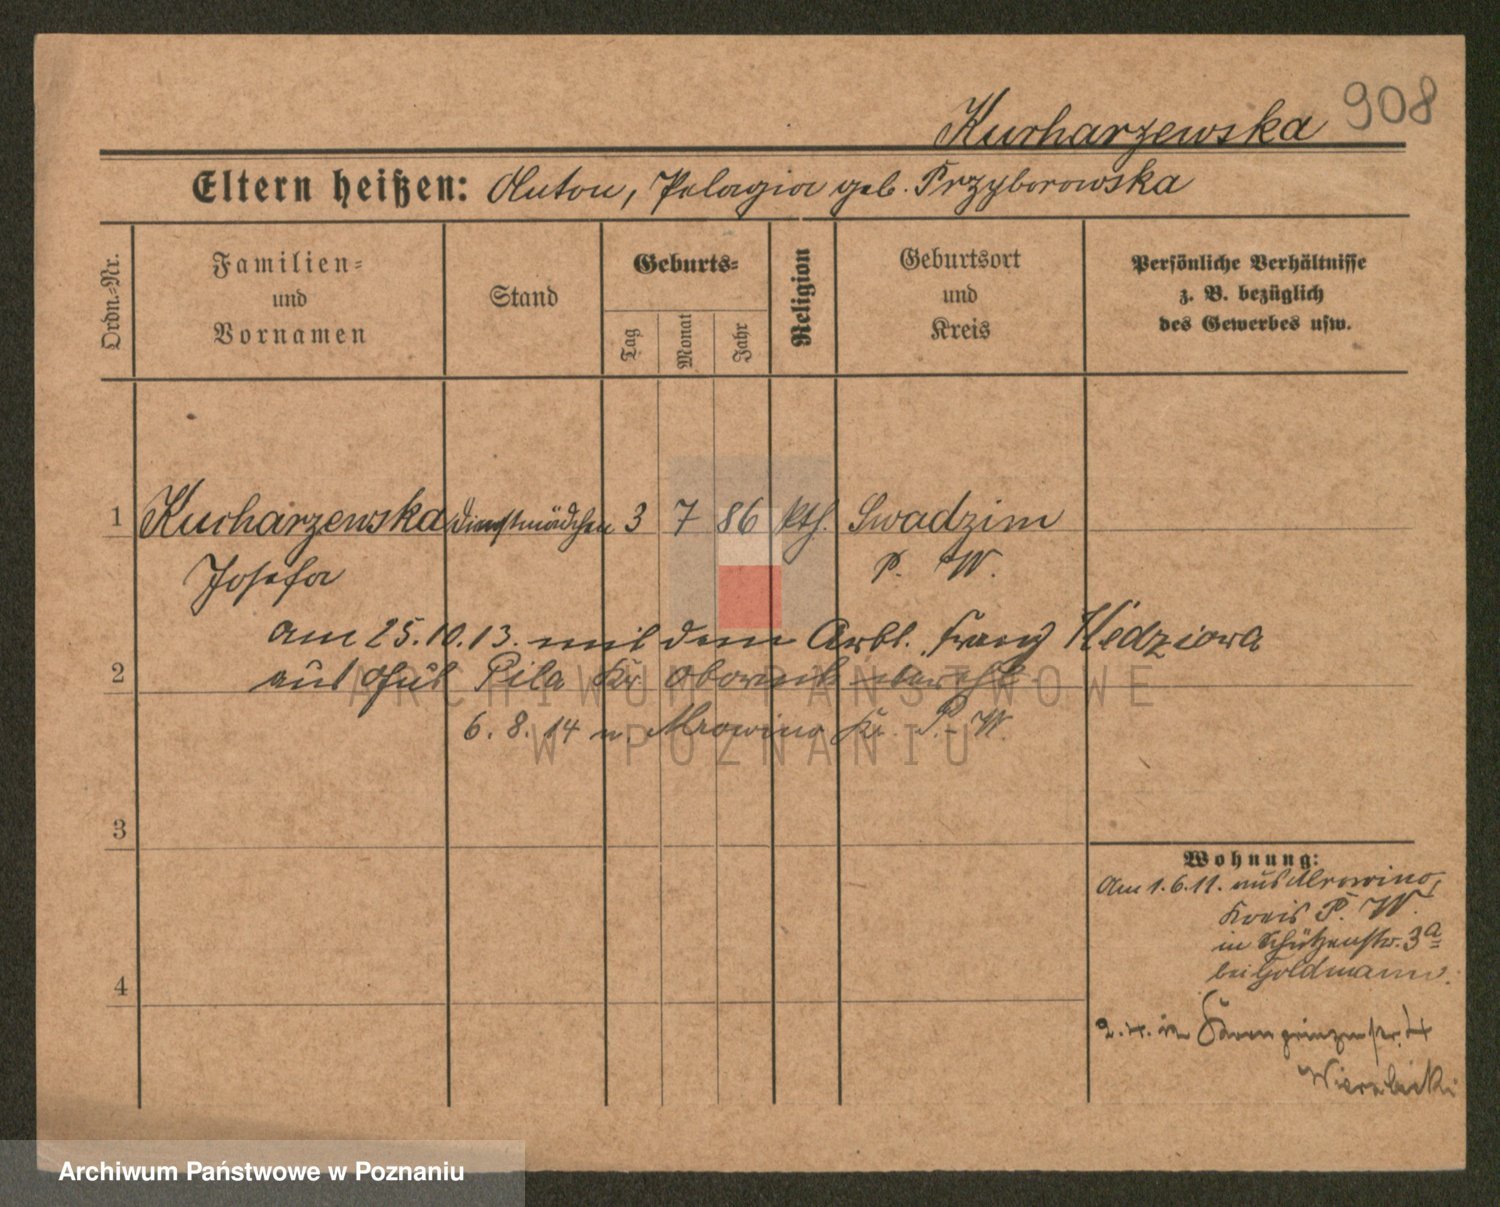 Kucharzewska 908
Eltern heißen: Anton, Pelagia geb. Przyborowska
Ordn.-Nr.
Familien-
und
Vornamen
Stand
Geburts-
Tag
Monat
Jahr
Religion
Geburtsort
und
Kreis
Persönliche Verhältnisse
z. B. bezüglich
des Gewerbes usw.
1 Kucharzewska Dienstmädchen 3 7 86 kth. Swadzim
Josefa P. W.
am 25.10.13. mit dem Arbt. Franz Kledziora
2 aus Gut Pila Kr. Obornik
6. 8. 14 n. Mrowino Kr. P.-W.
3
4
Wohnung:
Am 1.6.11. aus Mrowino,
Kreis P. W.
in Schützenstr. 3a
bei Goldmann.
2.4. in Kronprinzenstr.
Wierzbicki
ARCHIWUM PAŃSTWOWE
W POZNANIU
Archiwum Państwowe w Poznaniu